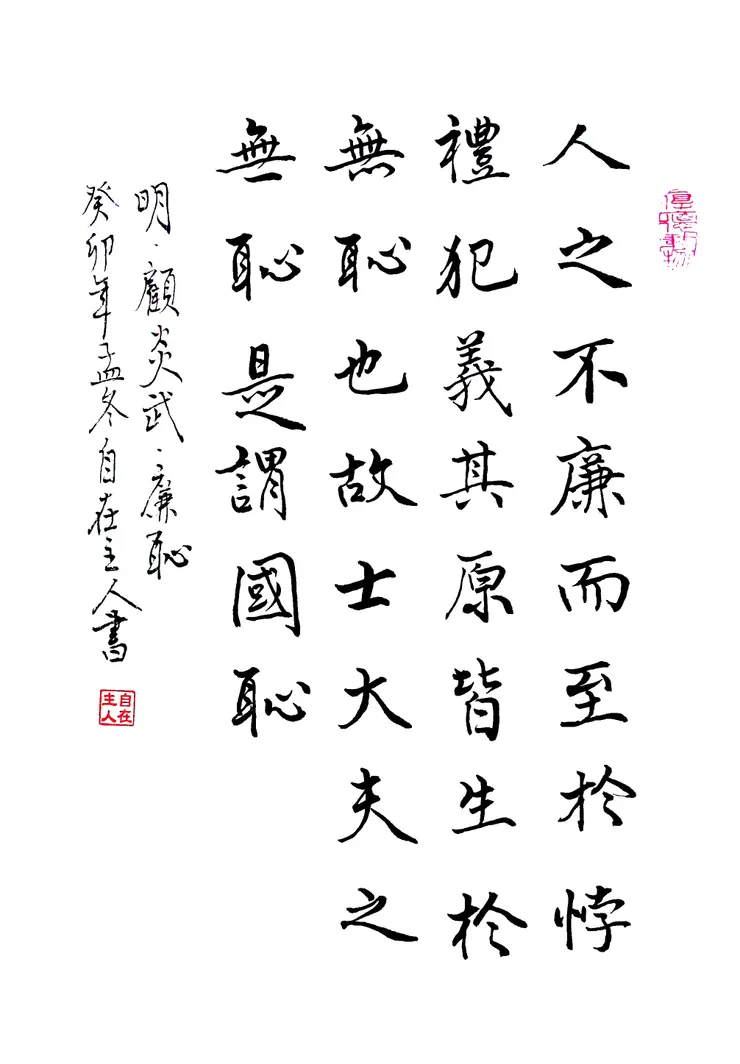 厚德載物
人之不廉而至於悖
禮犯義其原皆生於
無恥也故士大夫之
無恥是謂國恥
明·顧炎武·廉恥
癸卯年孟冬自在主人書
自在主人